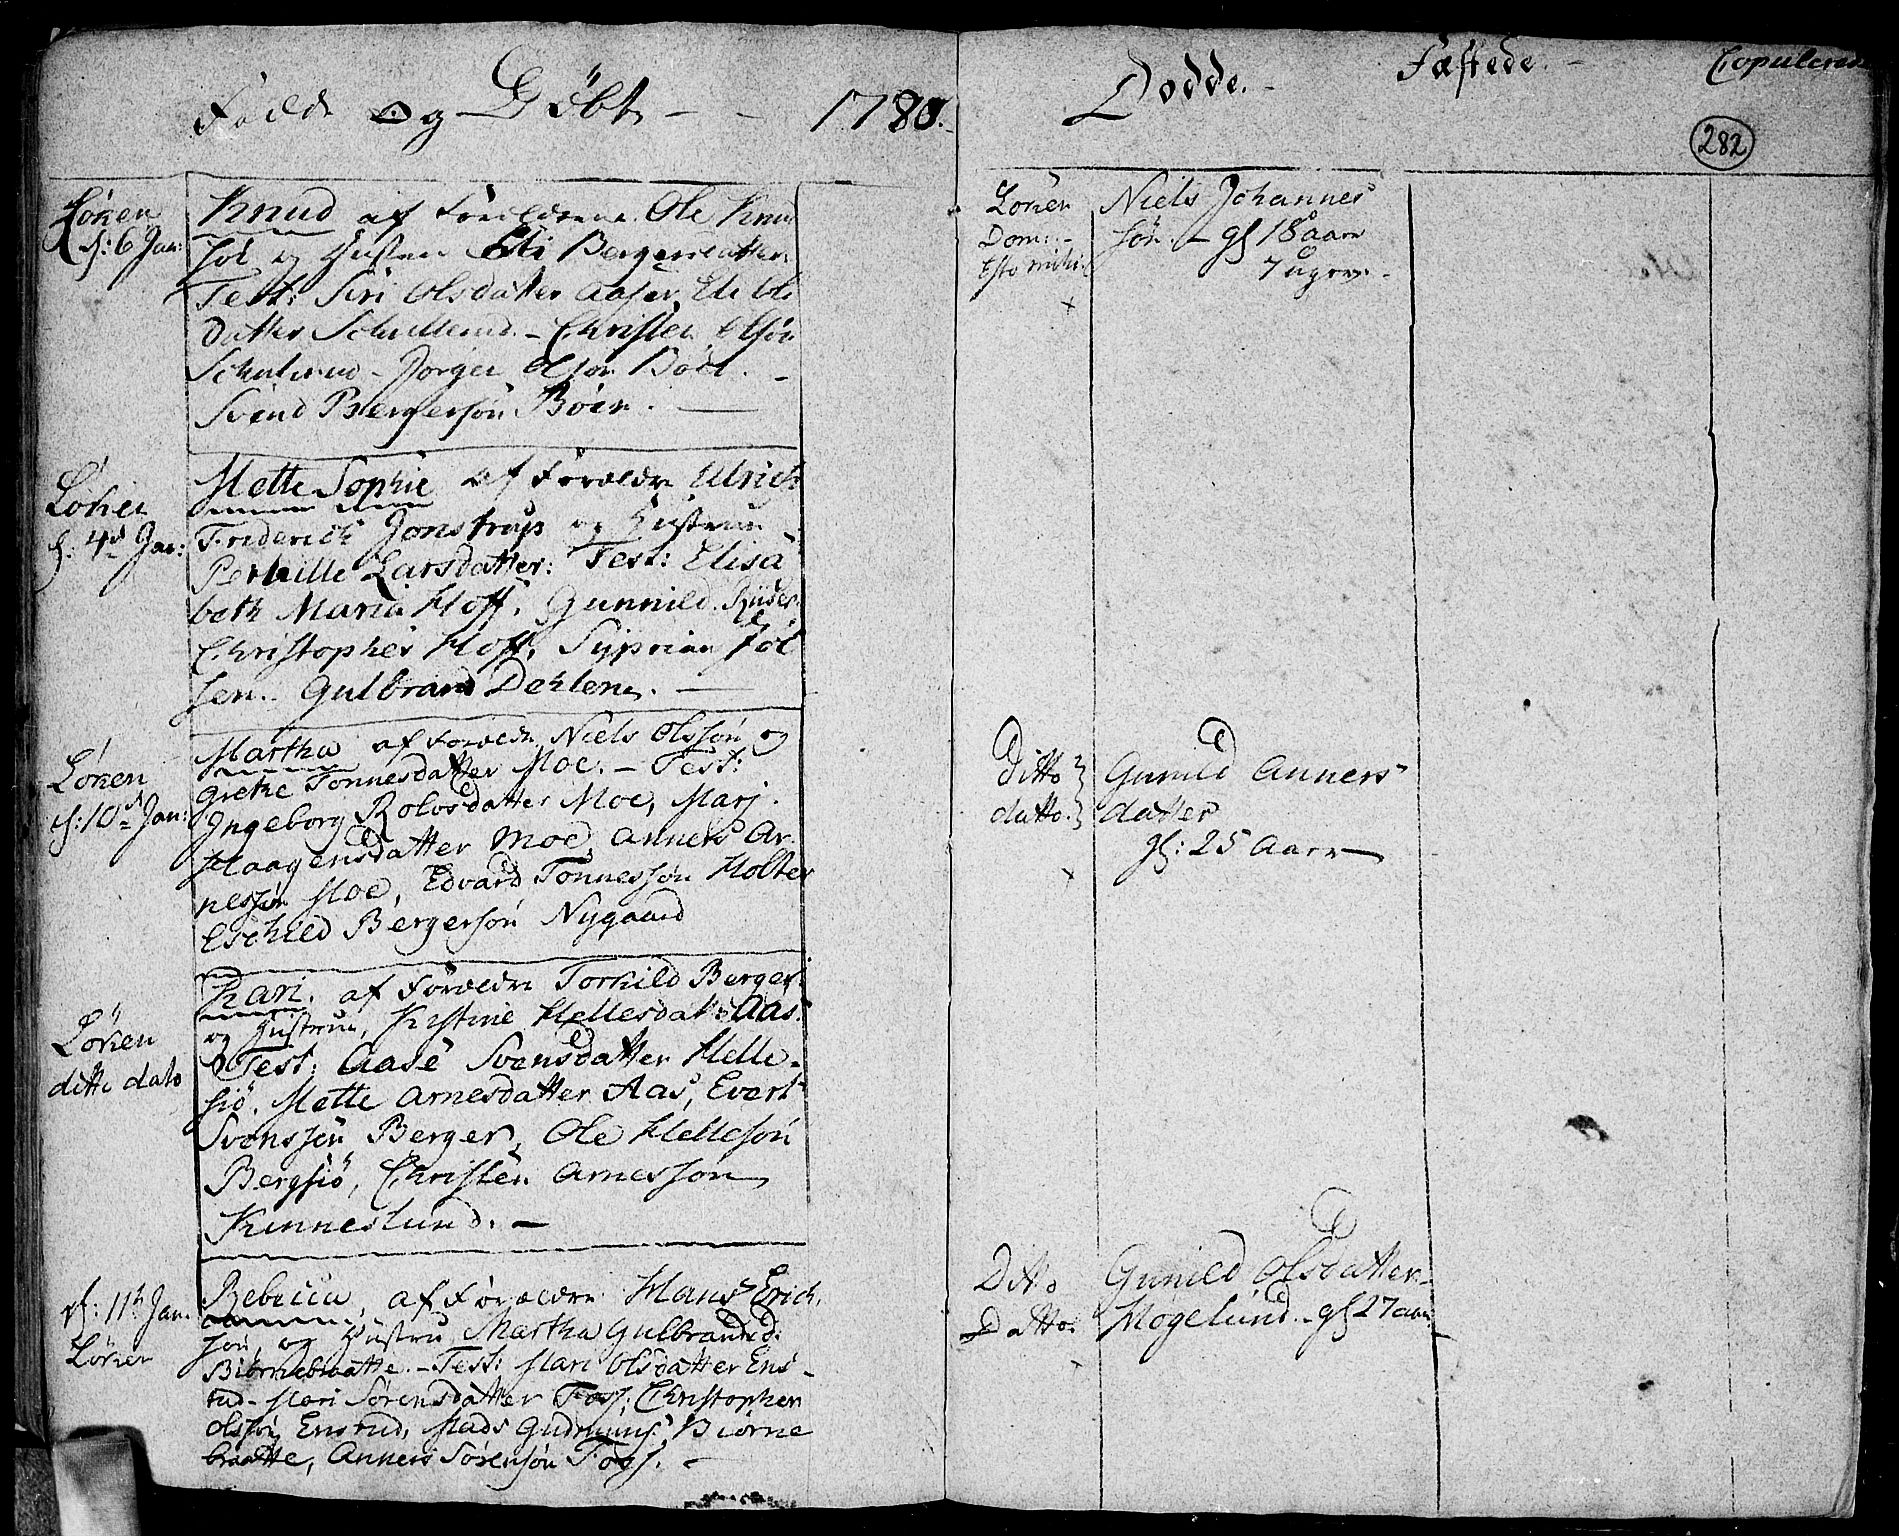 Födde og Döbte - - 1780.
Løken
f: 6 Jan:
Knud af Forældrene Ole Knud
søl og Hustru Eli Bergersdatter
Test: Siri Olsdatter Aaser, Eli Ols
datter Schullerud. - Christen Olsøn
Schulerud - Børger Olsøn Böen. -
Svend Bergersön Böen. -
Løken
f: 4d Jan:
Mette Sophie af Forældre Ulrich
Friderich Jonstrup og Hustrue
Pernille Larsdatter: Test: Elisa
beth Maria Hoff. Gunnild
Christopher Hoff, Syprian Pöl
sen. Gulbrand Dehlene. -
Løken
f: 10d Jan:
Martha af Foreldre Niels Olssön og
Grethe Tonnesdatter Moe. - Test:
Ingeborg Rolvsdatter Moe, Marj
Haagensdatter Moe, Anners Ar
nessøn Moe, Edvard Tonnessøn Holter
Eschild Bergersön Nygaard
Løken
ditto dato
Kari. af Forældre Torkild Berger
og Hustrue, Kistine Hellesdat: Aas:
Test: Aase Svensdatter Helle-
siö. Mette Arnesdatter Aas, Evert
Svenssön Berger, Ole Hellesön
Bergsiö, Christen Arnessön
Kinneslund. -
f: 11te Jan.
Løken
Rebecca, af Forældre Hans Erich
søn og Hustru Martha Gulbrandsd:
Biørnebraatte. - Test: Mari Olsdatter Ens-
rud - Mari Sørensdatter Foss; Christopher
Olssøn Ensrud, Mads Gudmuns: Biørne
braatte, Anners Sørensøn Foss. -
Dodde. - Fæstede. - Copulerede
282
Löken
Dom:
Esto mihi
Niels Johannes
søn. - gl 18 aar
7 uger. -
Ditto
datto.
Gunild Anners
datter
gl: 25 Aar
Ditto
Datto.
Gunild Olsdatter
Mogelund. - gl 27 aar